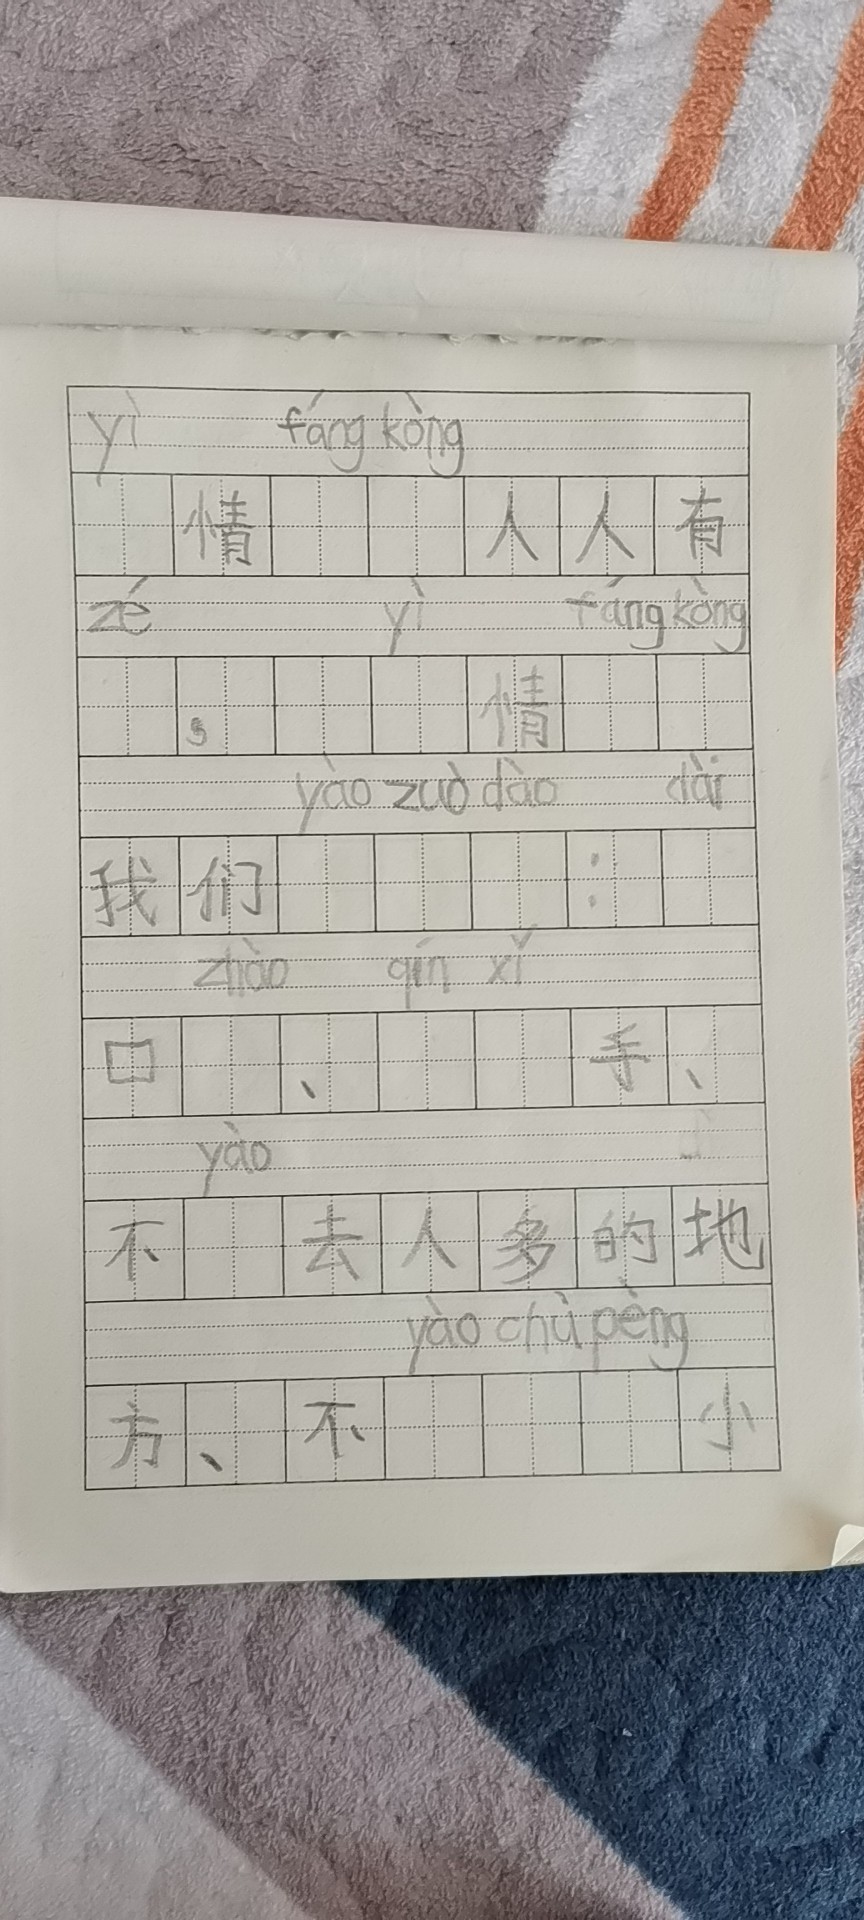 yì fáng kòng
情 人 人 有
zé yì fáng kòng
。 情
yào zuò dào dài
我 们 :
zhào qín xǐ
口 、 手 、
yào
不 去 人 多 的 地
yào chù pèng
方 、 不 小